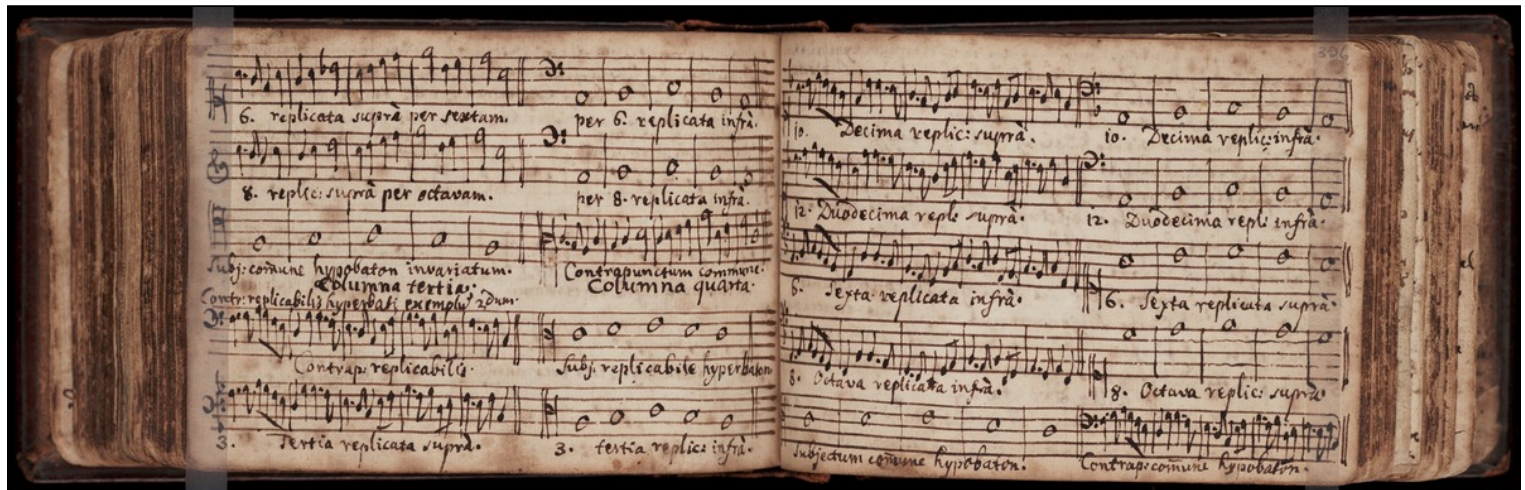 6. replicata suprà per sextam.
per 6. replicata infrà.
8. replic: suprà per octavam.
per 8. replicata infrà.
Subj: com̃une hypobaton invariatum.
Contrapunctum commune.
Columna tertia.
Columna quarta.
Contr: replicabilis hyperbati exemplũ 2dum.
Contrap: replicabilis.
Subj. replicabile hyperbaton
3. Tertia replicata suprà.
3. tertia replic: infrà.
396
10. Decima replic: suprà.
10. Decima replic: infrà.
12. Duodecima repl: suprà.
12. Duodecima repl: infrà.
6. Sexta replicata infrà.
6. Sexta replicata suprà.
8. Octava replicata infrà.
8. Octava replic: suprà.
Subjectum com̃une hypobaton.
Contrap: com̃une hypobaton.